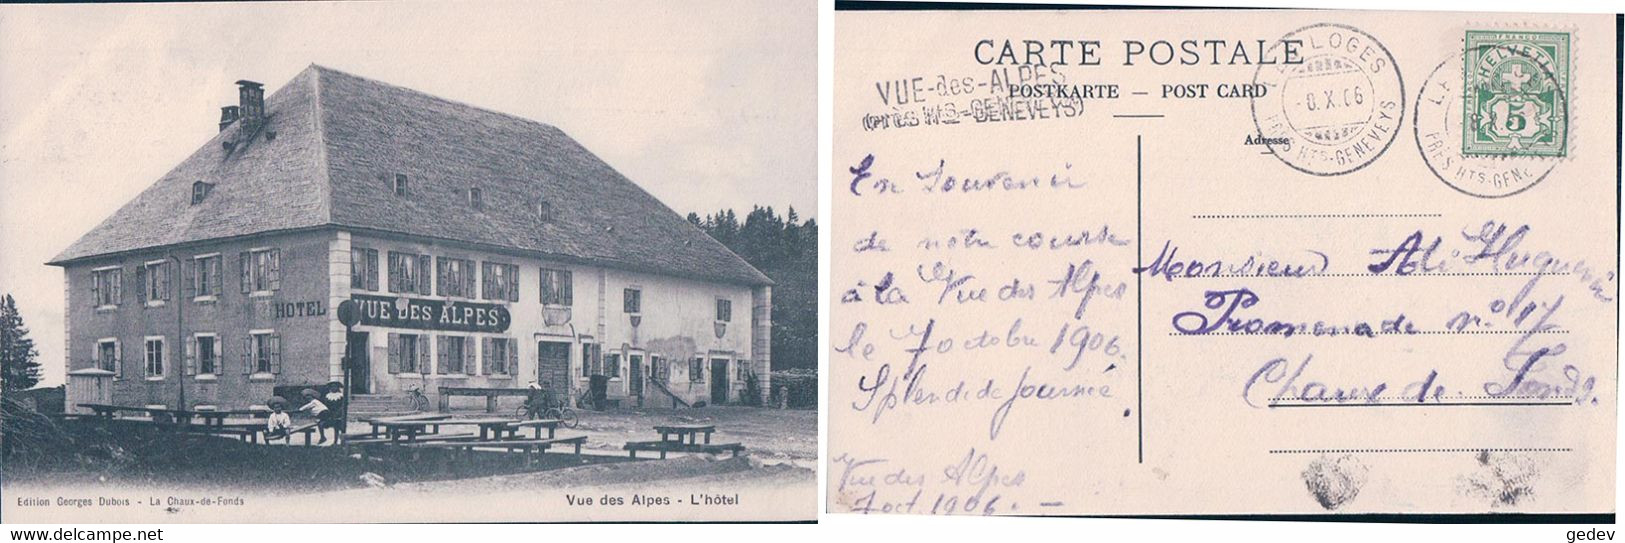 HOTEL
VUE DES ALPES
Edition Georges Dubois - La Chaux-de-Fonds
Vue des Alpes - L'hôtel
CARTE POSTALE
POSTKARTE — POST CARD
VUE-des-ALPES
(PRÈS HTS-GENEVEYS)
LES LOGES
-8.X.06
PRÈS HTS-GENEVEYS
FRANCO
HELVETIA
5
PRÈS HTS-GENE
Adresse
En Souvenir
de notre course
à la Vue des Alpes
le 7 octobre 1906.
Splendide journée.
Vue des Alpes
7 oct. 1906. —
Monsieur Ali Huguenin
Promenade no 17
Chaux de Fonds.
gedev